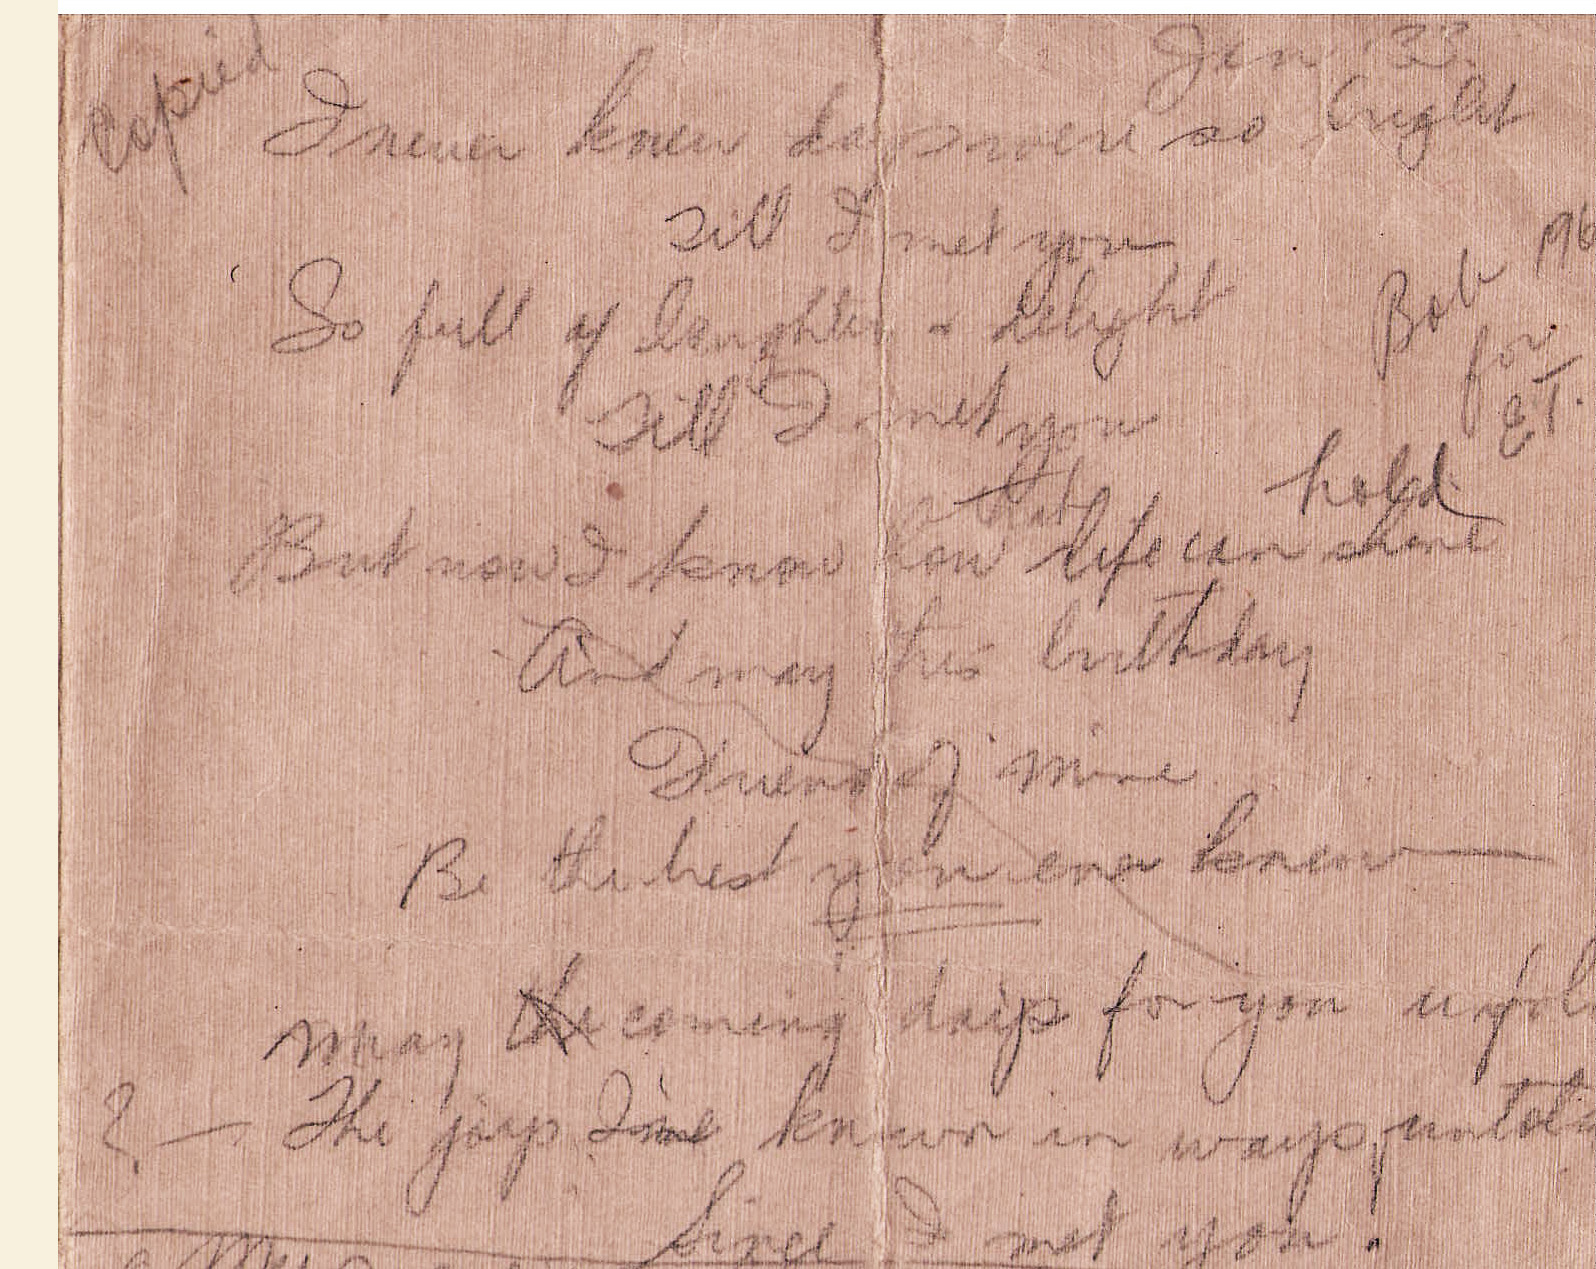 Copied
Jan. '33.
I never knew days were so bright
Till I met you
So full of laughter & delight
Till I met you
Bob
for
E.T.
that hold
But now I know how life can shine
And may this birthday
Friend of mine
Be the best you ever knew
May the coming days for you unfol
? — The joys I've known in ways untold
Since I met you!